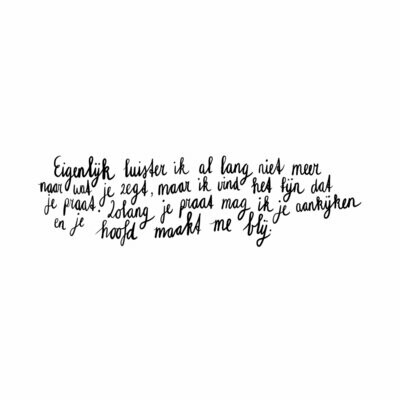 Eigenlijk luister ik al lang niet meer
naar wat je zegt, maar ik vind het fijn dat
je praat. Zolang je praat mag ik je aankijken
en je hoofd maakt me blij.